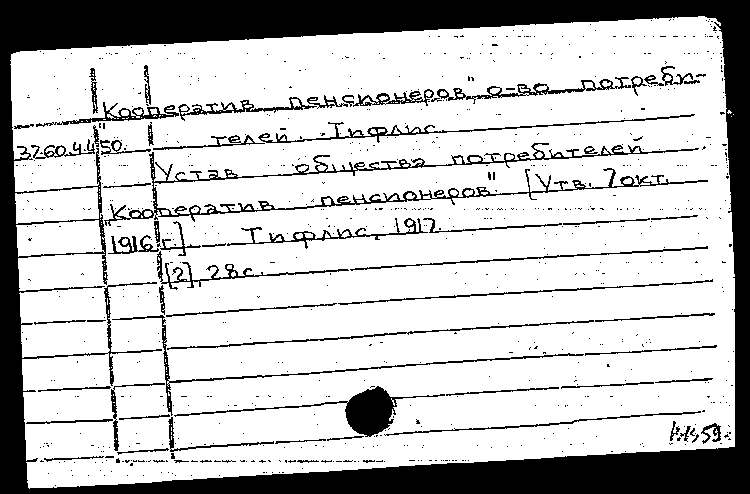 "Кооператив пенсионеров", о-во потреби-
37.60.4.4.50. телей. Тифлис.
Устав общества потребителей
"Кооператив пенсионеров" [Утв. 7 окт.
1916 г.] Тифлис, 1917.
[2], 28 с.